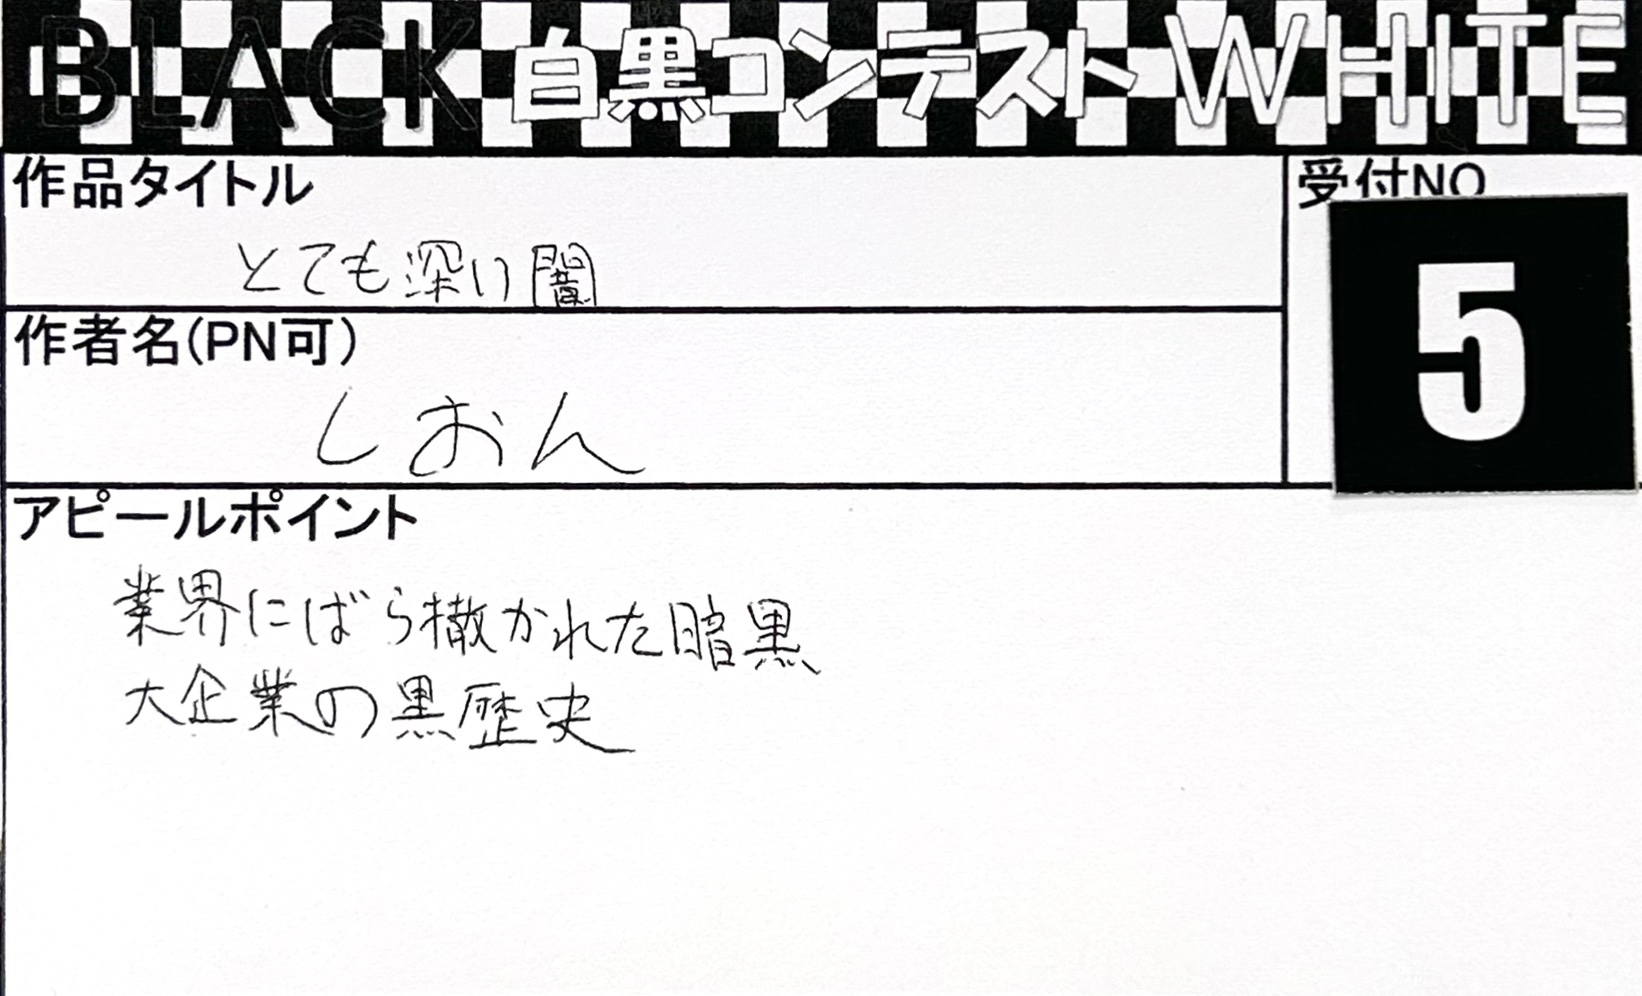 BLACK 白黒コンテスト WHITE
作品タイトル
とても深い闇
受付NO
5
作者名(PN可)
しおん
アピールポイント
業界にばら撒かれた暗黒
大企業の黒歴史